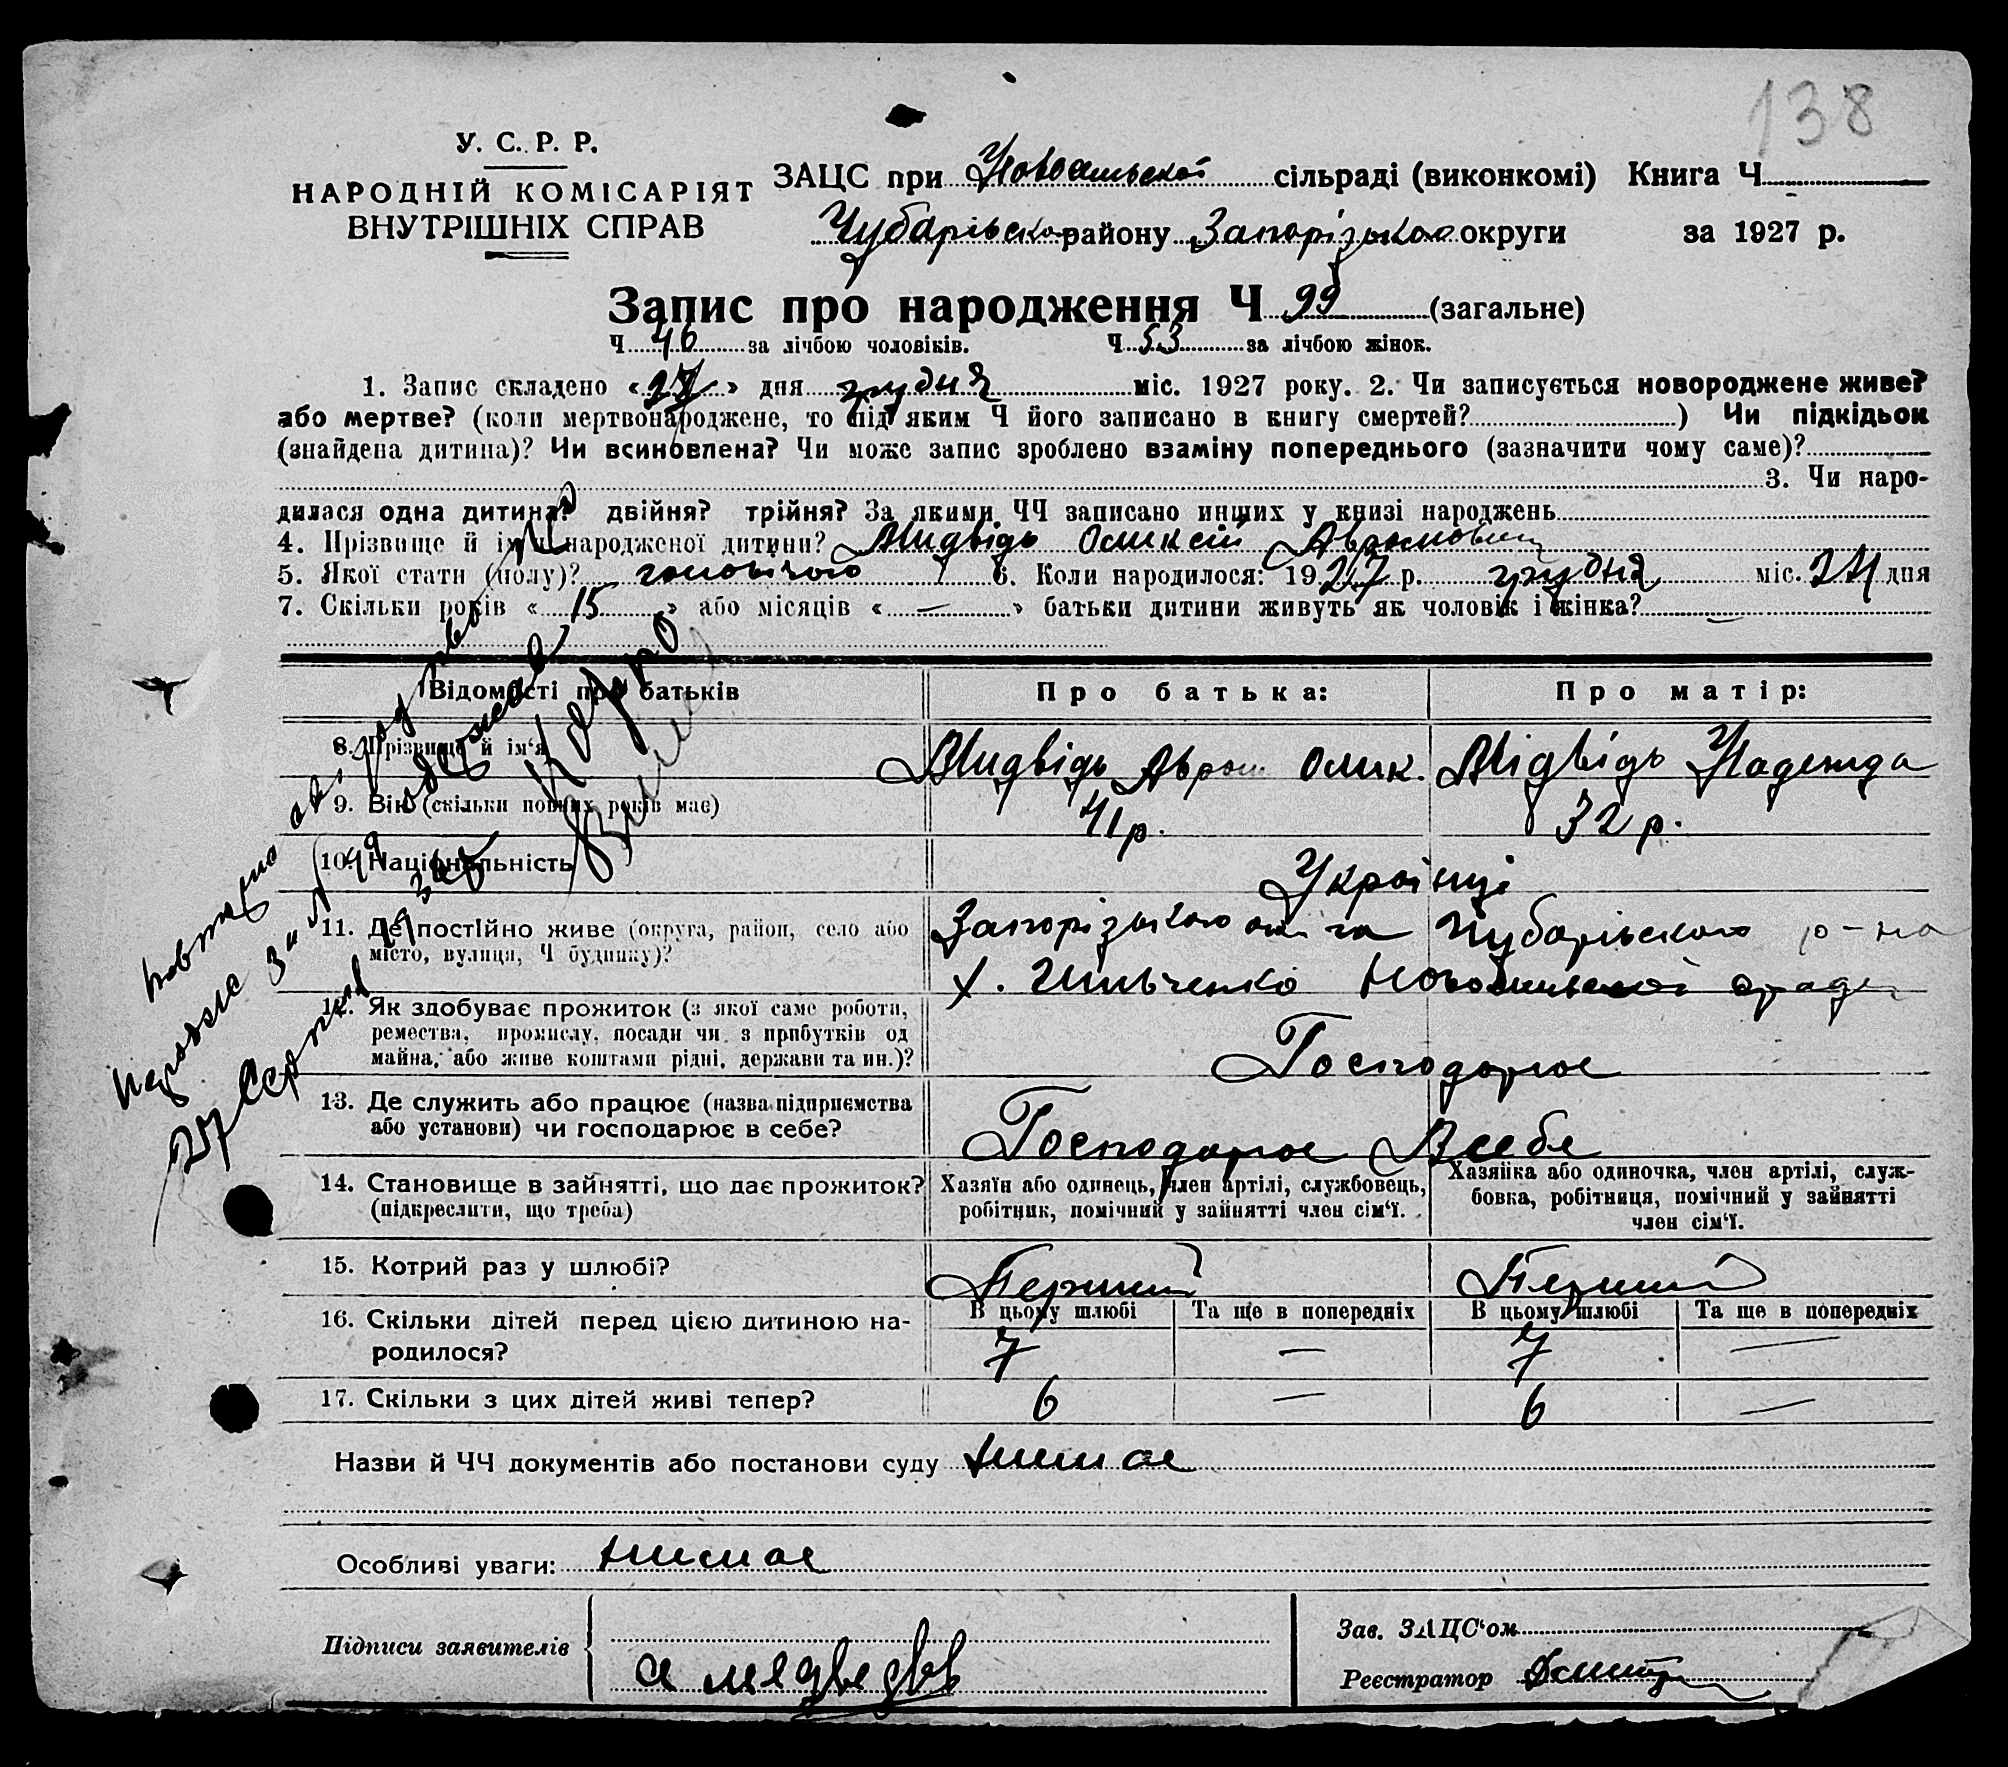 138
У. С. Р. Р.
НАРОДНІЙ КОМІСАРІЯТ
ВНУТРІШНІХ СПРАВ
ЗАЦС при сільраді (виконкомі) Книга Ч
Чубарівского району Запорізького округи за 1927 р.
Запис про народження Ч 99 (загальне)
Ч 46 за лічбою чоловіків. Ч 53 за лічбою жінок.
1. Запис складено «27» дня грудня міс. 1927 року. 2. Чи записується новороджене живе?
або мертве? (коли мертвонароджене, то під яким Ч його записано в книгу смертей? ) Чи підкідьок
(знайдена дитина)? Чи всиновлена? Чи може запис зроблено взаміну попереднього (зазначити чому саме)?
3. Чи наро-
дилася одна дитина? двійня? трійня? За якими ЧЧ записано инших у книзі народжень
4. Прізвище й ім'я народженої дитини? Мидвідь Оликсій Аврамович
5. Якої стати (полу)? 6. Коли народилося: 1927 р. грудня міс. 24 дня
7. Скільки років « 15 » або місяців « — » батьки дитини живуть як чоловік і жінка? —
Відомості про батьків
Про батька:
Про матір:
8. Прізвище й ім'я
Мидвідь Аврам Олик.
Мідвідь Надежда
9. Вік (скільки повних років має)
41 р.
32 р.
10. Національність
Українці
11. Де постійно живе (округа, район, село або
місто, вулиця, Ч будинку)?
Запорізького Чубарівского р-на
х. Ильченко
12. Як здобуває прожиток (з якої саме роботи,
ремества, промислу, посади чи з прибутків од
майна, або живе коштами рідні, держави та ин.)?
Господарює
13. Де служить або працює (назва підприємства
або установи) чи господарює в себе?
Господарює Всебе
14. Становище в зайнятті, що дає прожиток?
(підкреслити, що треба)
Хазяїн або одинець, член артілі, службовець,
робітник, помічний у зайнятті член сім'ї.
Хазяйка або одиночка, член артілі, служ-
бовка, робітниця, помічний у зайнятті
член сім'ї.
15. Котрий раз у шлюбі?
Перший
Перший
16. Скільки дітей перед цією дитиною на-
родилося?
В цьому шлюбі Та ще в попередніх В цьому шлюбі Та ще в попередніх
7 — 7 —
17. Скільки з цих дітей живі тепер?
6 — 6 —
Назви й ЧЧ документів або постанови суду немає
Особливі уваги: немає
Підписи заявителів
а медведь
Зав. ЗАЦС'ом
Реєстратор